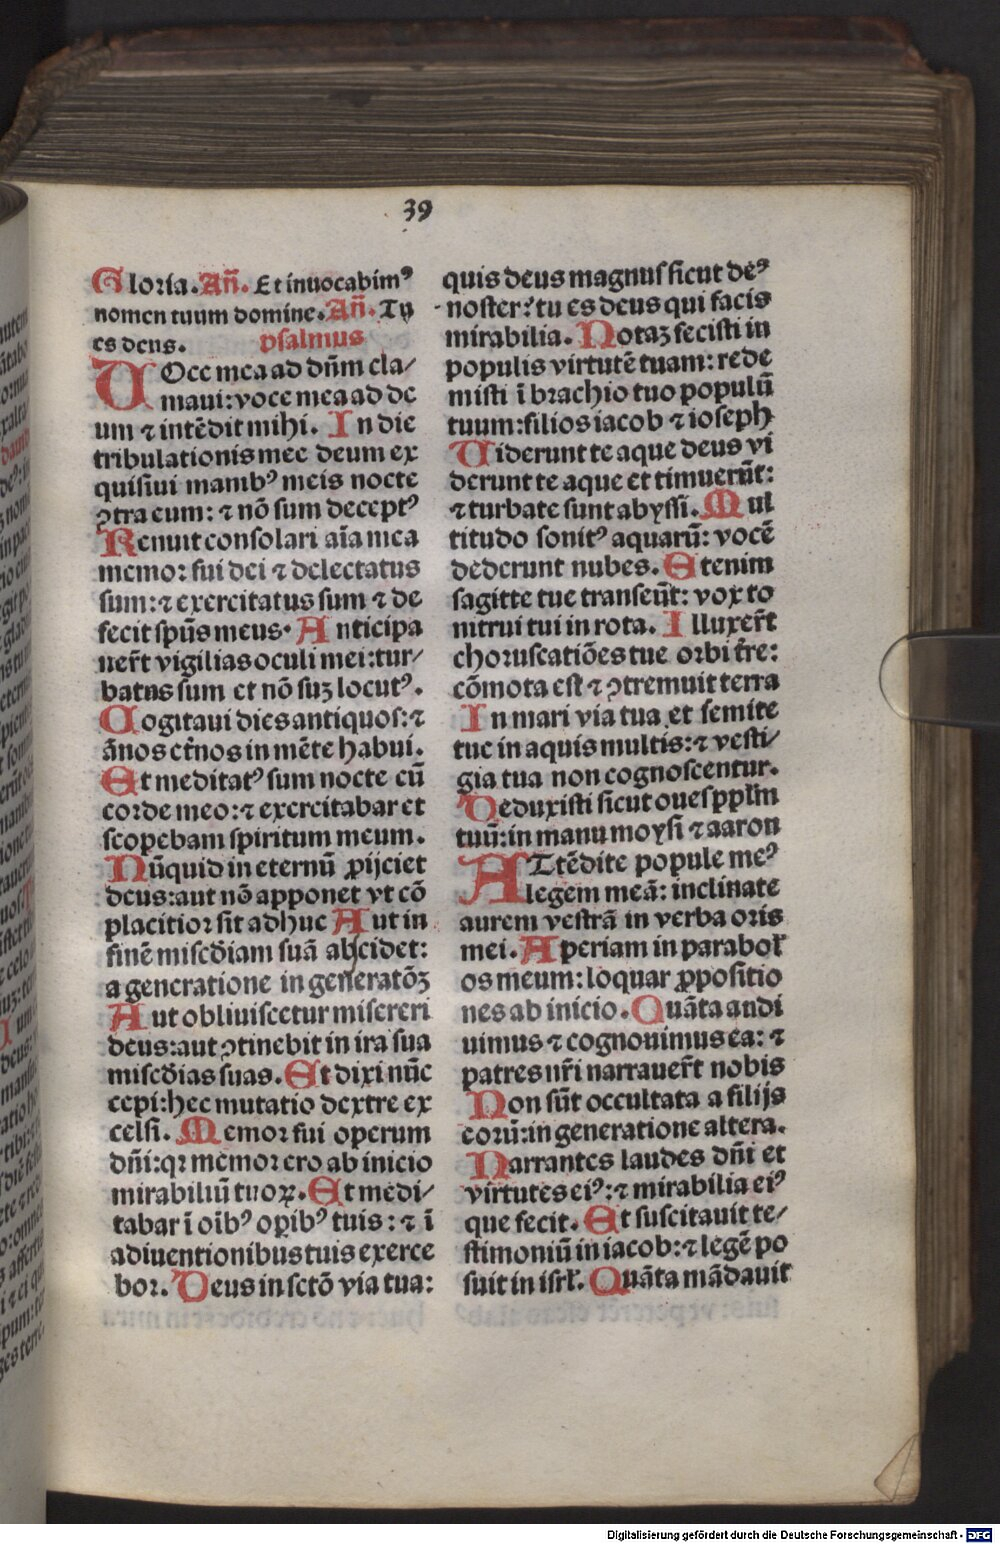 39
Gloria. Añ. Et inuocabimꝰ
nomen tuum domine. Añ. Tu
es deus. psalmus
UOce mea ad dñm cla/
maui: voce mea ad de
um ⁊ intẽdit mihi. In die
tribulationis mee deum ex
quisiui manibꝰ meis nocte
ꝯtra eum: ⁊ nõ sum deceptꝰ
Renuit consolari aĩa mea
memor fui dei ⁊ delectatus
sum: ⁊ exercitatus sum ⁊ de
fecit spũs meus. Anticipa
uer̃t vigilias oculi mei: tur/
batus sum et nõ suꝫ locutꝰ.
Cogitaui dies antiquos: ⁊
ãnos et̃nos in mẽte habui.
Et meditatꝰ sum nocte cũ
corde meo: ⁊ exercitabar et
scopebam spiritum meum.
Nũquid in eternũ ꝓijciet
deus: aut nõ apponet vt cõ
placitior sit adhuc Aut in
finẽ miscd̃iam suã abscidet:
a generatione in generatõꝫ
Aut obliuiscetur misereri
deus: aut ꝯtinebit in ira sua
miscd̃ias suas. Et dixi nũc
cepi: hec mutatio dextre ex
celsi. Memor fui operum
dñi: qꝛ memor ero ab inicio
mirabiliũ tuoꝝ. Et medi/
tabar ĩ oĩbꝰ oꝑibꝰ tuis: ⁊ ĩ
adiuentionibus tuis exerce
bor. Deus in sctõ via tua:
quis deus magnus sicut deꝰ
noster? tu es deus qui facis
mirabilia. Notaꝫ fecisti in
populis virtutẽ tuam: rede
misti ĩ brachio tuo populũ
tuum: filios iacob ⁊ ioseph
Uiderunt te aque deus vi
derunt te aque et timuerũt:
⁊ turbate sunt abyssi. Mul
titudo sonitꝰ aquarũ: vocẽ
dederunt nubes. Etenim
sagitte tue transeũt: vox to
nitrui tui in rota. Illuxer̃t
choruscatiões tue orbi tr̃e:
cõmota est ⁊ ꝯtremuit terra
In mari via tua et semite
tue in aquis multis: ⁊ vesti/
gia tua non cognoscentur.
Deduxisti sicut oues ppl̃m
tuũ: in manu moysi ⁊ aaron
ATtẽdite popule meꝰ
legem meã: inclinate
aurem vestrã in verba oris
mei. Aperiam in parabol̃
os meum: loquar ꝓpositio
nes ab inicio. Quãta audi
uimus ⁊ cognouimus ea: ⁊
patres nr̃i narrauer̃t nobis
Non sũt occultata a filijs
eorũ: in generatione altera.
Narrantes laudes dñi et
virtutes eiꝰ: ⁊ mirabilia eiꝰ
que fecit. Et suscitauit te/
stimoniũ in iacob: ⁊ legẽ po
suit in isrl̃. Quãta mãdauit
Digitalisierung gefördert durch die Deutsche Forschungsgemeinschaft - DFG